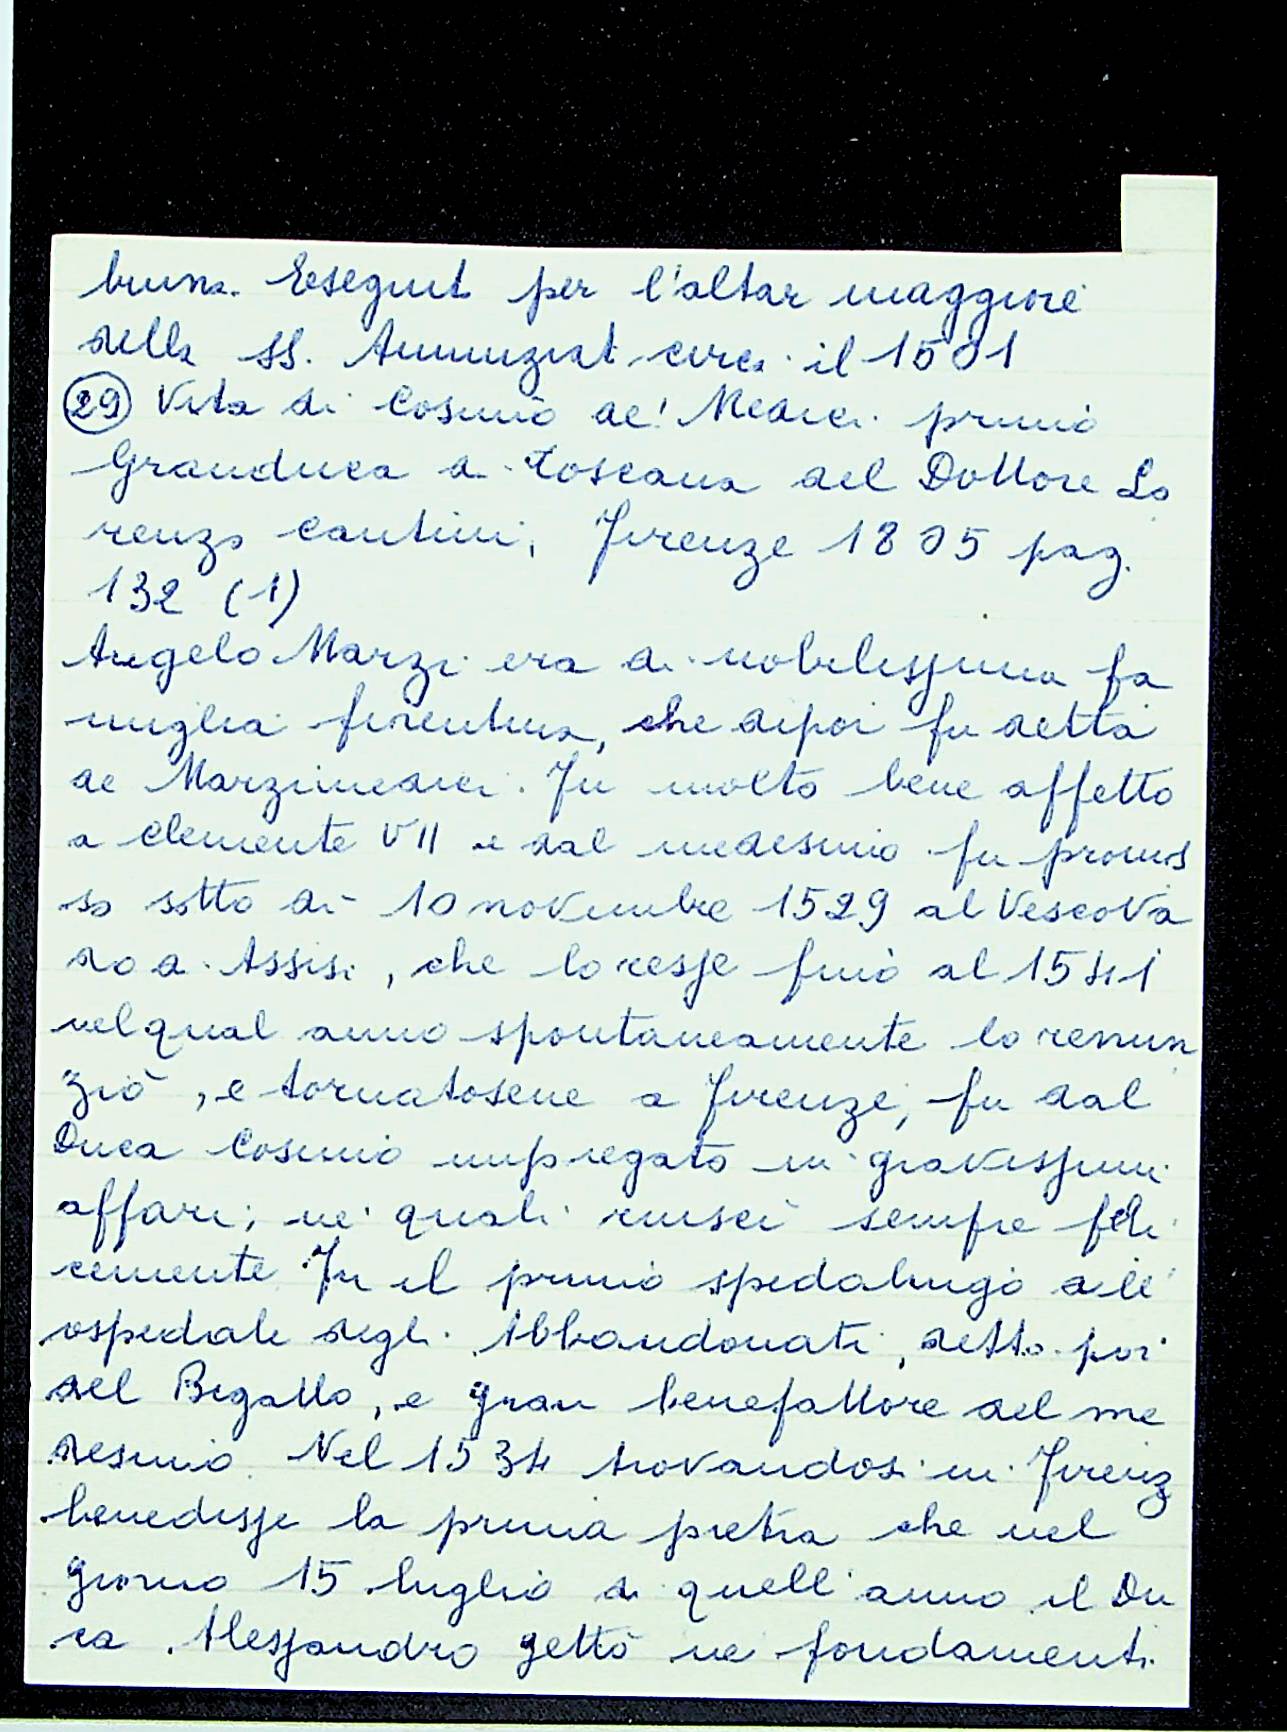 buna. Eseguit per l'altar maggiore
della SS. Annunziat circa il 1501
29 Vita di Cosimo de' Medici primo
Granduca di Toscana del Dottore Lo
renzo Cantini, Firenze 1805 pag.
132 (1)
Angelo Marzi era di nobilissima fa
miglia fiorentina, che dipoi fu detta
de Marzimedici. Fu molto bene affetto
a Clemente VII e dal medesimo fu promos
so sotto di 10 novembre 1529 al Vescova
do di Assisi, che lo resse fino al 1541
nel qual anno spontaneamente lo renun
ziò, e tornatosene a Firenze, fu dal
Duca Cosimo impiegato in gravissimi
affari, ne' quali riuscì sempre feli
cemente Fu il primo spedalingo dell'
ospedale degli Abbandonati, detto poi
del Bigallo, e gran benefattore del me
desimo. Nel 1534 trovandosi in Firenz
benedisse la prima pietra che nel
giorno 15 luglio di quell'anno il Du
ca Alessandro gettò ne fondamenti